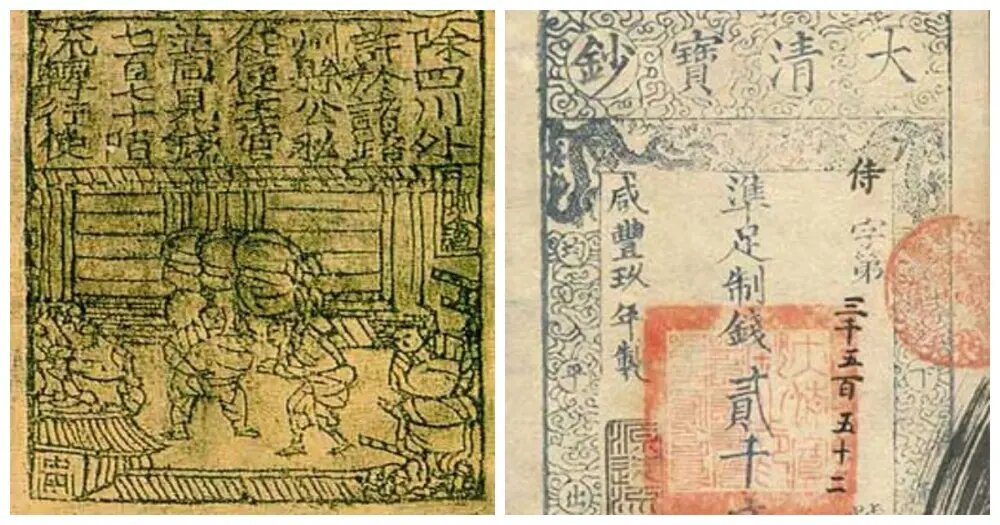 除四川外
許於諸路
州縣公私
從便主管
並同見錢
七百七十陌
流轉行使
大清寶鈔
侍字第三千五百五十二
準足制錢貳千
咸豐玖年製